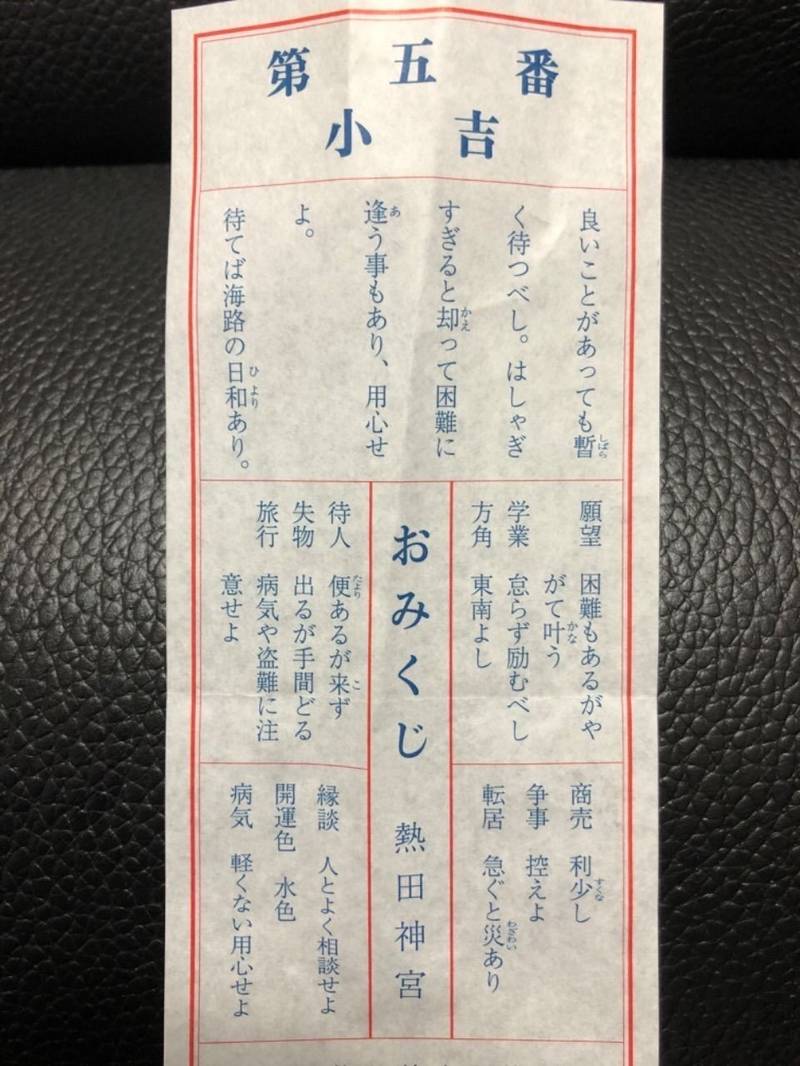 第五番
小吉
良いことがあっても暫
く待つべし。はしゃぎ
すぎると却って困難に
逢う事もあり、用心せ
よ。
待てば海路の日和あり。
願望 困難もあるがや
がて叶う
学業 怠らず励むべし
方角 東南よし
おみくじ 熱田神宮
待人 便あるが来ず
失物 出るが手間どる
旅行 病気や盗難に注
意せよ
商売 利少し
争事 控えよ
転居 急ぐと災あり
縁談 人とよく相談せよ
開運色 水色
病気 軽くない用心せよ